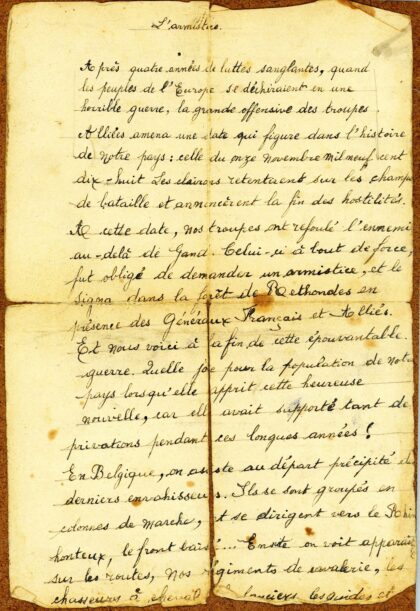 L'armistice.
Après quatre années de luttes sanglantes, quand
les peuples de l'Europe se déchiraient en une
horrible guerre, la grande offensive des troupes
Alliées amena une date qui figure dans l'histoire
de notre pays : celle du onze Novembre mil neuf cent
dix-huit. Les clairons retentirent sur les champs
de bataille et annoncèrent la fin des hostilités.
A cette date, nos troupes ont refoulé l'ennemi
au-delà de Gand. Celui-ci à bout de force,
fut obligé de demander un armistice, et le
signa dans la forêt de Rethondes en
présence des Généraux Français et Alliés.
Et nous voici à la fin de cette épouvantable
guerre. Quelle joie pour la population de notre
pays lorsqu'elle apprit cette heureuse
nouvelle, car elle avait supporté tant de
privations pendant ces longues années !
En Belgique, on assiste au départ précipité des
derniers envahisseurs. Ils se sont groupés en
colonnes de marche, et se dirigent vers le Rhin
honteux, le front baissé... Ensuite on voit apparaître
sur les routes, nos régiments de cavalerie, les
chasseurs à cheval lanciers, les guides et